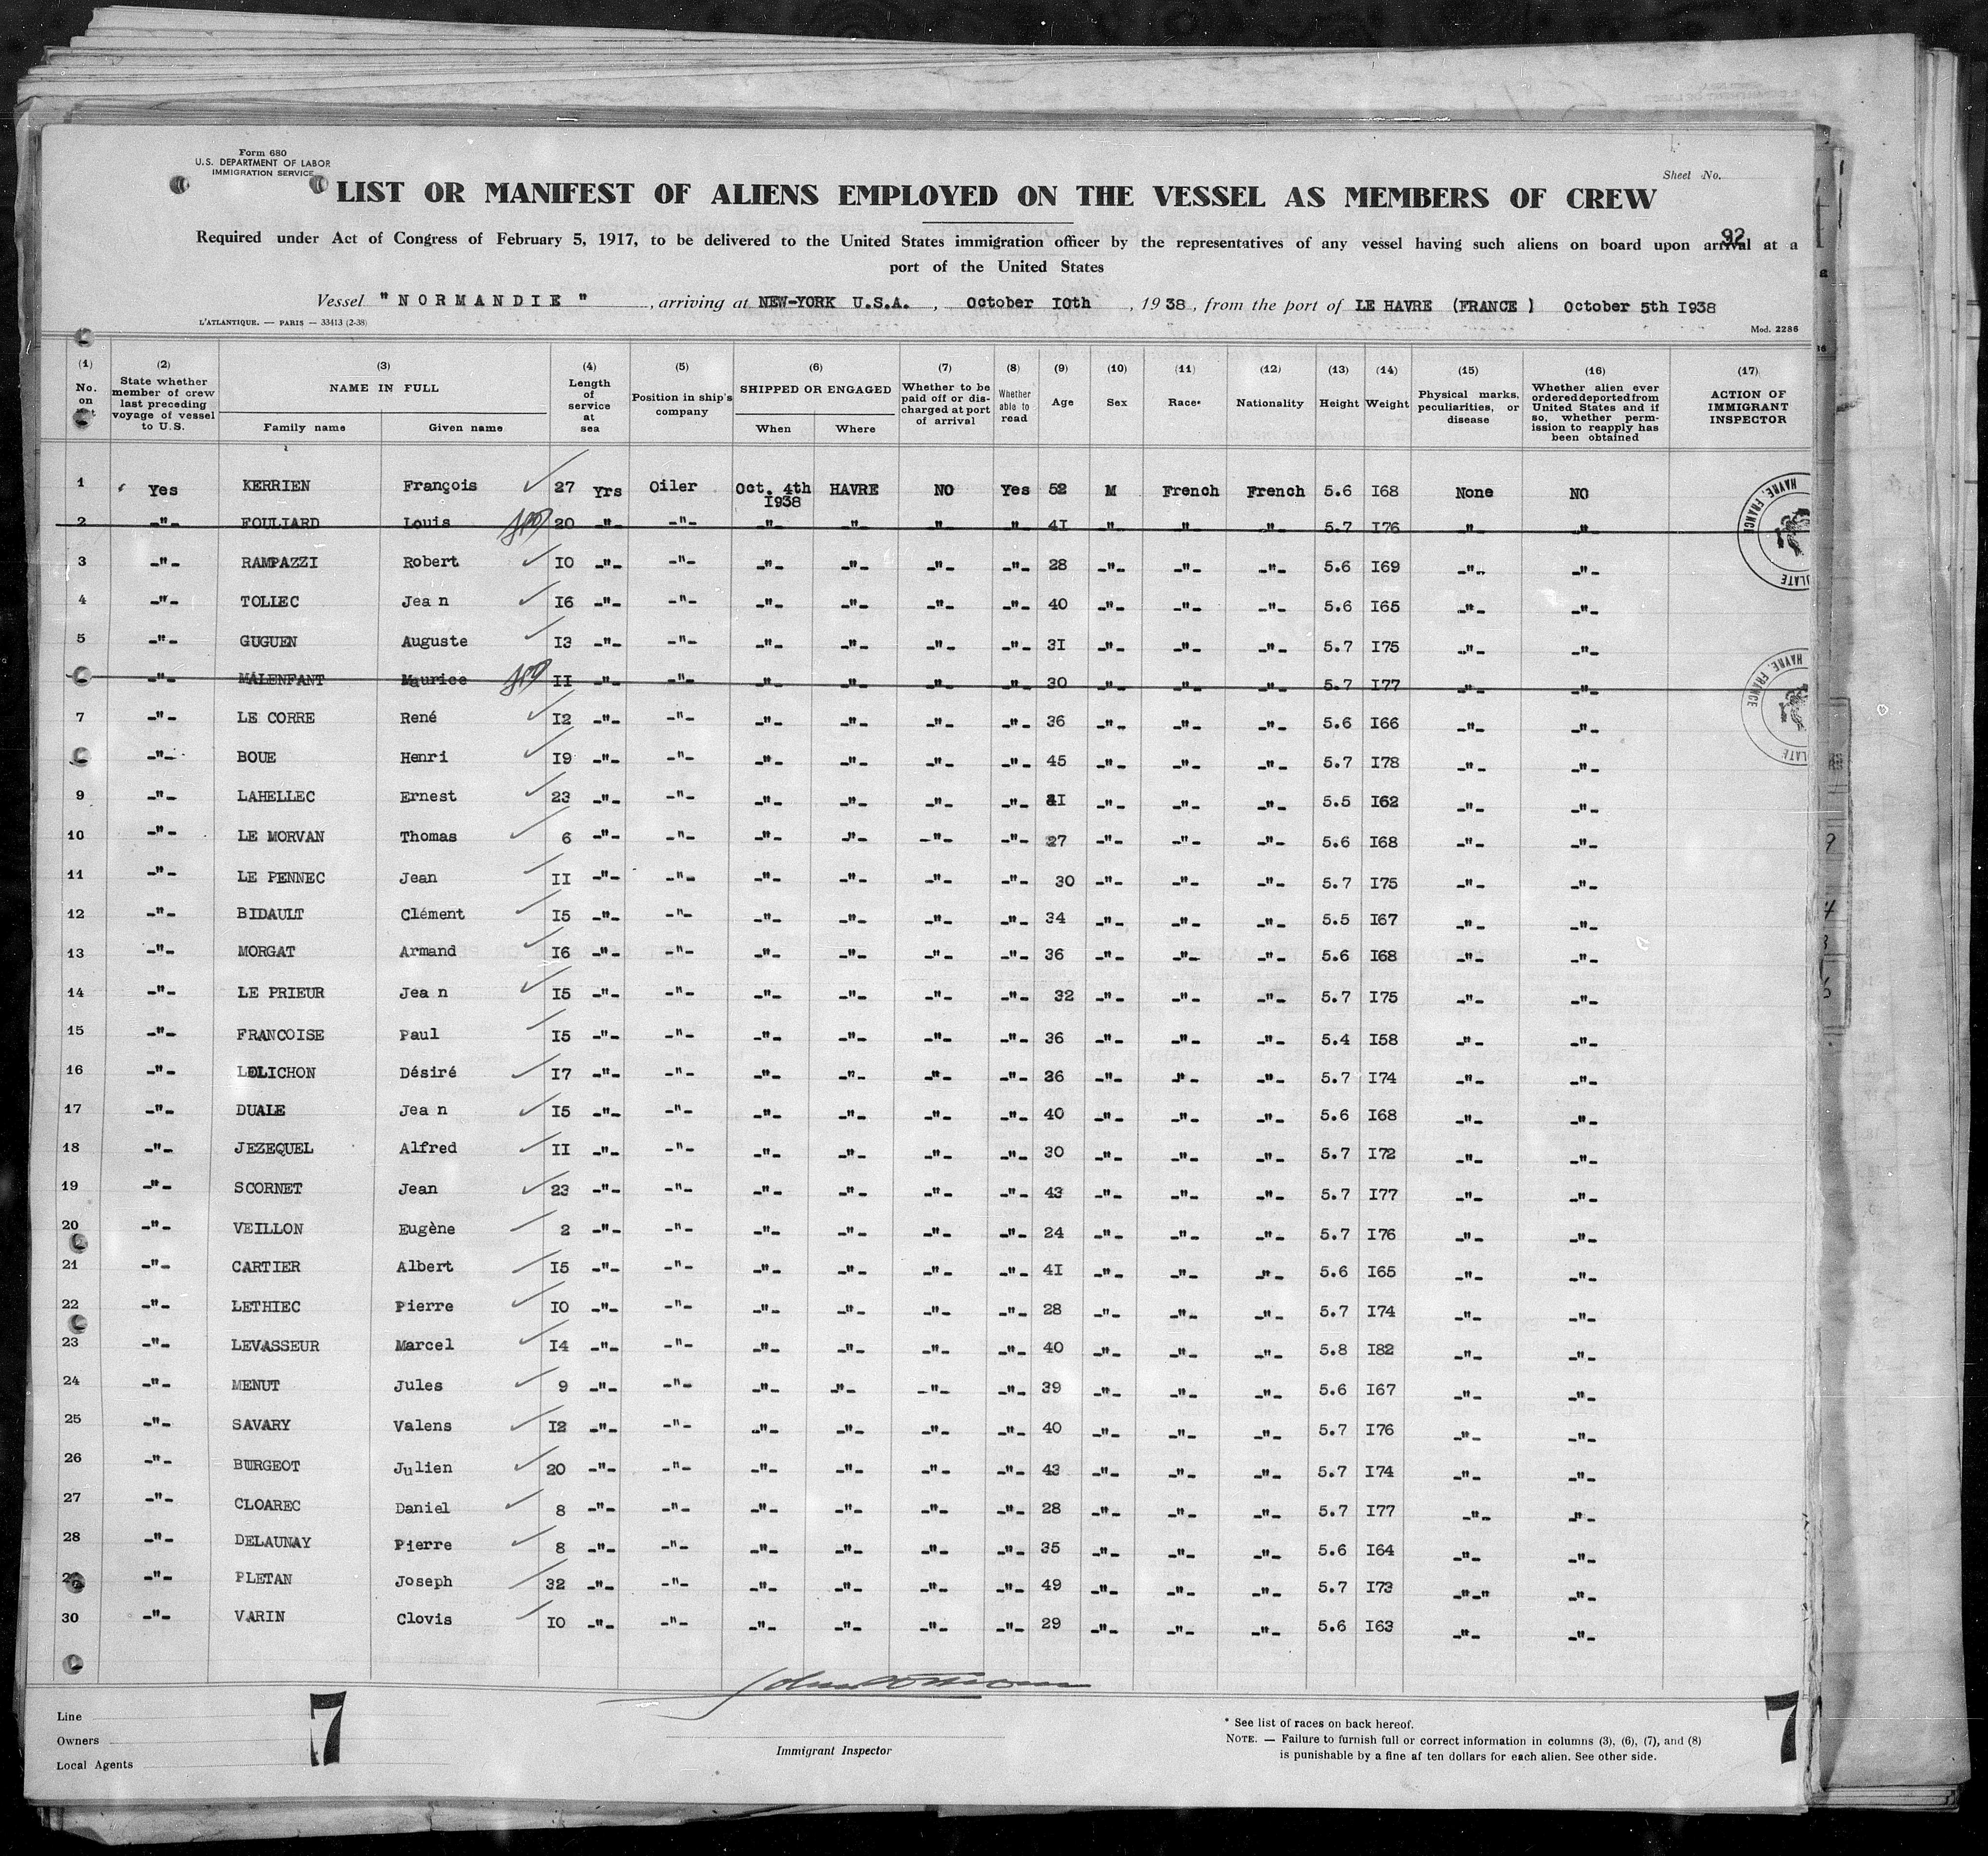 Form 680
U.S. DEPARTMENT OF LABOR
IMMIGRATION SERVICE
Sheet No.
LIST OR MANIFEST OF ALIENS EMPLOYED ON THE VESSEL AS MEMBERS OF CREW
92
Required under Act of Congress of February 5, 1917, to be delivered to the United States immigration officer by the representatives of any vessel having such aliens on board upon arrival at a
port of the United States
Vessel "NORMANDIE", arriving at NEW-YORK U.S.A., October 10th, 1938, from the port of LE HAVRE (FRANCE) October 5th 1938
L'ATLANTIQUE. — PARIS — 33413 (2-38)
Mod. 2286
(1) (2) (3) (4) (5) (6) (7) (8) (9) (10) (11) (12) (13) (14) (15) (16) (17)
No. on
State whether member of crew last preceding voyage of vessel to U.S.
NAME IN FULL
Family name Given name
Length of service at sea
Position in ship's company
SHIPPED OR ENGAGED
When Where
Whether to be paid off or discharged at port of arrival
Whether able to read
Age
Sex
Race*
Nationality
Height
Weight
Physical marks, peculiarities, or disease
Whether alien ever ordered deported from United States and if so, whether permission to reapply has been obtained
ACTION OF IMMIGRANT INSPECTOR
1 Yes KERRIEN François 27 Yrs Oiler Oct. 4th 1938 HAVRE NO Yes 52 M French French 5.6 168 None NO
2 -"- FOULIARD Louis 20 -"- -"- -"- -"- -"- -"- 41 -"- -"- -"- 5.7 176 -"- -"-
3 -"- RAMPAZZI Robert 10 -"- -"- -"- -"- -"- -"- 28 -"- -"- -"- 5.6 169 -"- -"-
4 -"- TOLLEC Jean 16 -"- -"- -"- -"- -"- -"- 40 -"- -"- -"- 5.6 165 -"- -"-
5 -"- GUGUEN Auguste 13 -"- -"- -"- -"- -"- -"- 31 -"- -"- -"- 5.7 175 -"- -"-
-"- MALENFANT Maurice 11 -"- -"- -"- -"- -"- -"- 30 -"- -"- -"- 5.7 177 -"- -"-
7 -"- LE CORRE René 12 -"- -"- -"- -"- -"- -"- 36 -"- -"- -"- 5.6 166 -"- -"-
-"- BOUE Henri 19 -"- -"- -"- -"- -"- -"- 45 -"- -"- -"- 5.7 178 -"- -"-
9 -"- LAHELLEC Ernest 23 -"- -"- -"- -"- -"- -"- 41 -"- -"- -"- 5.5 162 -"- -"-
10 -"- LE MORVAN Thomas 6 -"- -"- -"- -"- -"- -"- 27 -"- -"- -"- 5.6 168 -"- -"-
11 -"- LE PENNEC Jean 11 -"- -"- -"- -"- -"- -"- 30 -"- -"- -"- 5.7 175 -"- -"-
12 -"- BIDAULT Clément 15 -"- -"- -"- -"- -"- -"- 34 -"- -"- -"- 5.5 167 -"- -"-
13 -"- MORGAT Armand 16 -"- -"- -"- -"- -"- -"- 36 -"- -"- -"- 5.6 168 -"- -"-
14 -"- LE PRIEUR Jean 15 -"- -"- -"- -"- -"- -"- 32 -"- -"- -"- 5.7 175 -"- -"-
15 -"- FRANCOISE Paul 15 -"- -"- -"- -"- -"- -"- 36 -"- -"- -"- 5.4 158 -"- -"-
16 -"- LOLICHON Désiré 17 -"- -"- -"- -"- -"- -"- 36 -"- -"- -"- 5.7 174 -"- -"-
17 -"- DUALE Jean 15 -"- -"- -"- -"- -"- -"- 40 -"- -"- -"- 5.6 168 -"- -"-
18 -"- JEZEQUEL Alfred 11 -"- -"- -"- -"- -"- -"- 30 -"- -"- -"- 5.7 172 -"- -"-
19 -"- SCORNET Jean 23 -"- -"- -"- -"- -"- -"- 43 -"- -"- -"- 5.7 177 -"- -"-
20 -"- VEILLON Eugène 2 -"- -"- -"- -"- -"- -"- 24 -"- -"- -"- 5.7 176 -"- -"-
21 -"- CARTIER Albert 15 -"- -"- -"- -"- -"- -"- 41 -"- -"- -"- 5.6 165 -"- -"-
22 -"- LETHIEC Pierre 10 -"- -"- -"- -"- -"- -"- 28 -"- -"- -"- 5.7 174 -"- -"-
23 -"- LEVASSEUR Marcel 14 -"- -"- -"- -"- -"- -"- 40 -"- -"- -"- 5.8 182 -"- -"-
24 -"- MENUT Jules 9 -"- -"- -"- -"- -"- -"- 39 -"- -"- -"- 5.6 167 -"- -"-
25 -"- SAVARY Valens 12 -"- -"- -"- -"- -"- -"- 40 -"- -"- -"- 5.7 176 -"- -"-
26 -"- BURGEOT Julien 20 -"- -"- -"- -"- -"- -"- 43 -"- -"- -"- 5.7 174 -"- -"-
27 -"- CLOAREC Daniel 8 -"- -"- -"- -"- -"- -"- 28 -"- -"- -"- 5.7 177 -"- -"-
28 -"- DELAUNAY Pierre 8 -"- -"- -"- -"- -"- -"- 35 -"- -"- -"- 5.6 164 -"- -"-
-"- PLETAN Joseph 32 -"- -"- -"- -"- -"- -"- 49 -"- -"- -"- 5.7 173 -"-" -"-
30 -"- VARIN Clovis 10 -"- -"- -"- -"- -"- -"- 29 -"- -"- -"- 5.6 163 -"- -"-
HAVRE, FRANCE
HAVRE, FRANCE
Line
Owners
Local Agents
7
Immigrant Inspector
* See list of races on back hereof.
NOTE. — Failure to furnish full or correct information in columns (3), (6), (7), and (8)
is punishable by a fine af ten dollars for each alien. See other side.
7